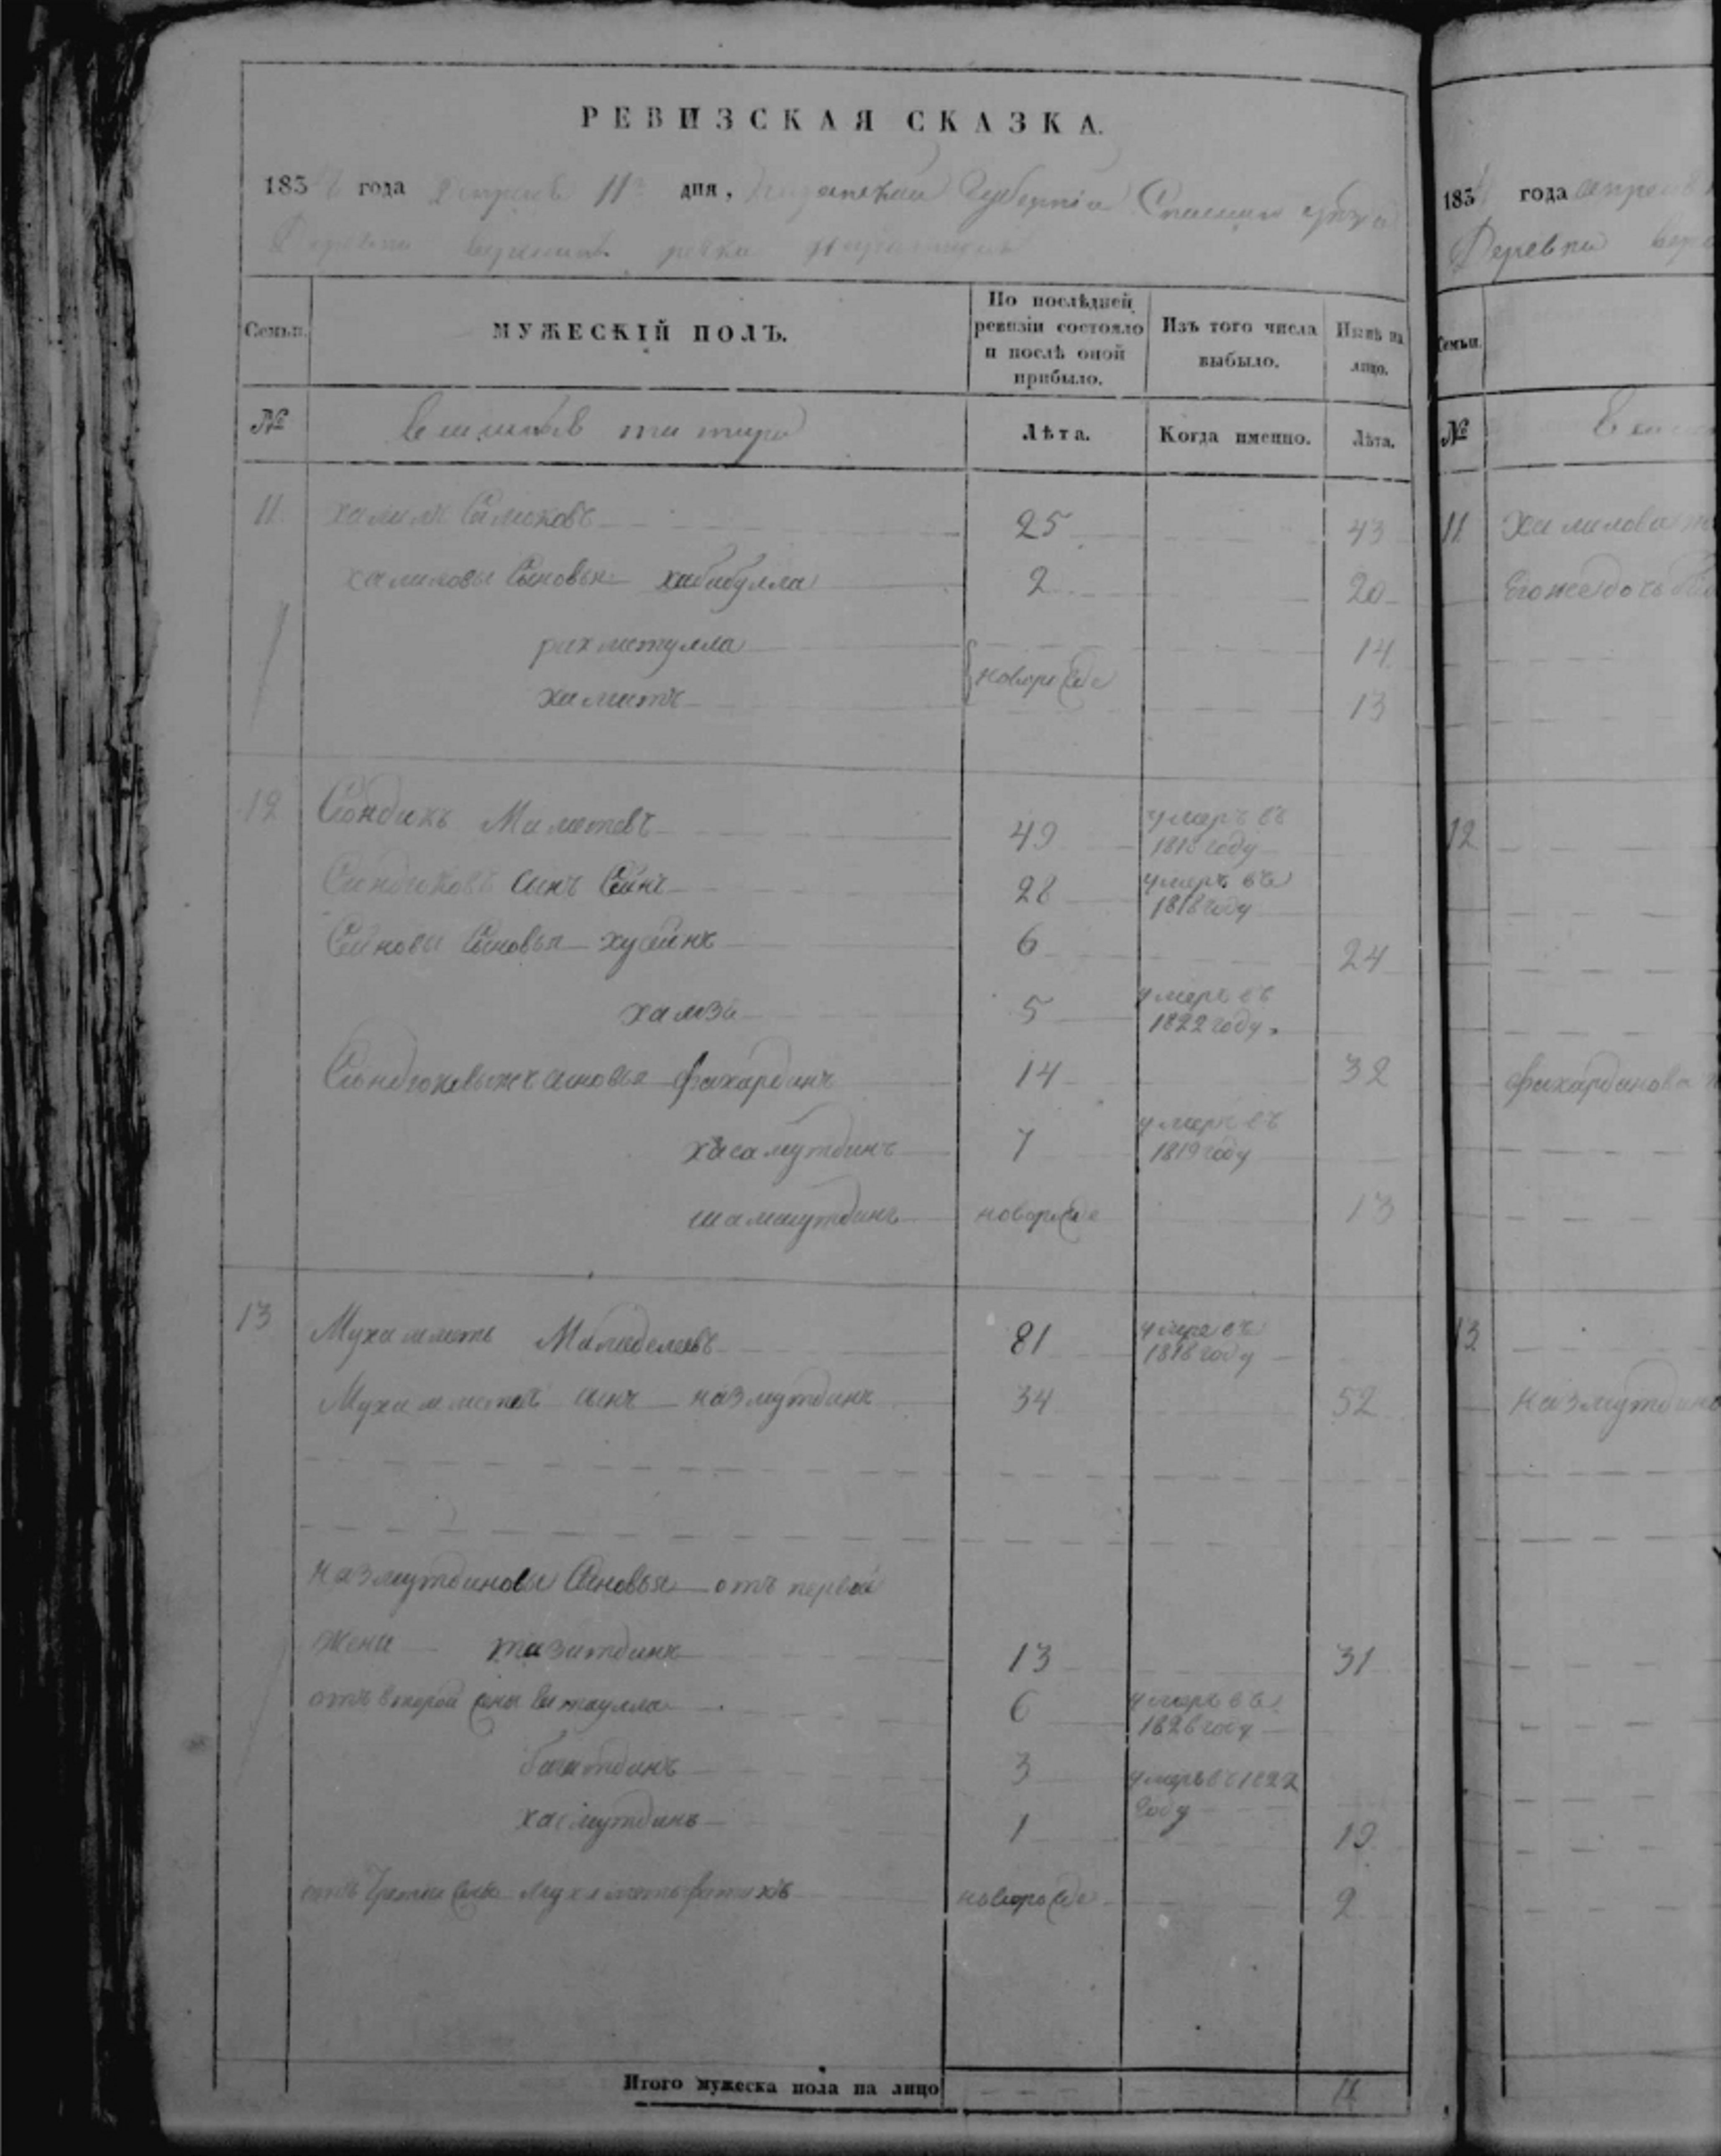 РЕВИЗСКАЯ СКАЗКА.
183 года Апреля 11го дня, Казанской Губернiи Спаского уезда
Деревни вершины речки
Семьи.
МУЖЕСКIЙ ПОЛЪ.
По послѣдней ревизiи состояло и послѣ оной прибыло.
Изъ того числа выбыло.
Нынѣ на лицо.
№
татары
Лѣта.
Когда именно.
Лѣта.
11 халилъ 25 43
халиловы Сыновья хабибулла 2 20
рахметулла 14
новорожде
хаметъ 13
12 Сюндюкъ Маметевъ 49 умеръ въ 1818 году
Сюндюковъ сынъ Сеинъ 28 умеръ въ 1818 году
Сеиновы Сыновья хусеинъ 6 24
хамза 5 умеръ въ 1822 году
Сюндюковыжъ сыновья фахардинъ 14 32
хасамутдинъ 7 умеръ въ 1819 году
шамшутдинъ новорожде 13
13 Мухаметъ 81 умеръ въ 1818 году
Мухаметевъ сынъ назмутдинъ 34 52
назмутдиновы Сыновья отъ первой
жены тазитдинъ 13 31
отъ второй жены 6 умеръ въ 1826 году
багатдинъ 3 умеръ въ 1822 году
хасмутдинъ 1 19
отъ Третьи жены Мухаметьфатихъ новорожде 2
Итого мужеска пола на лицо
183 года апреля
Деревни
Семьи.
№
11 Халилова
Его же дочь
12
фахардинова
13
назмутдинов